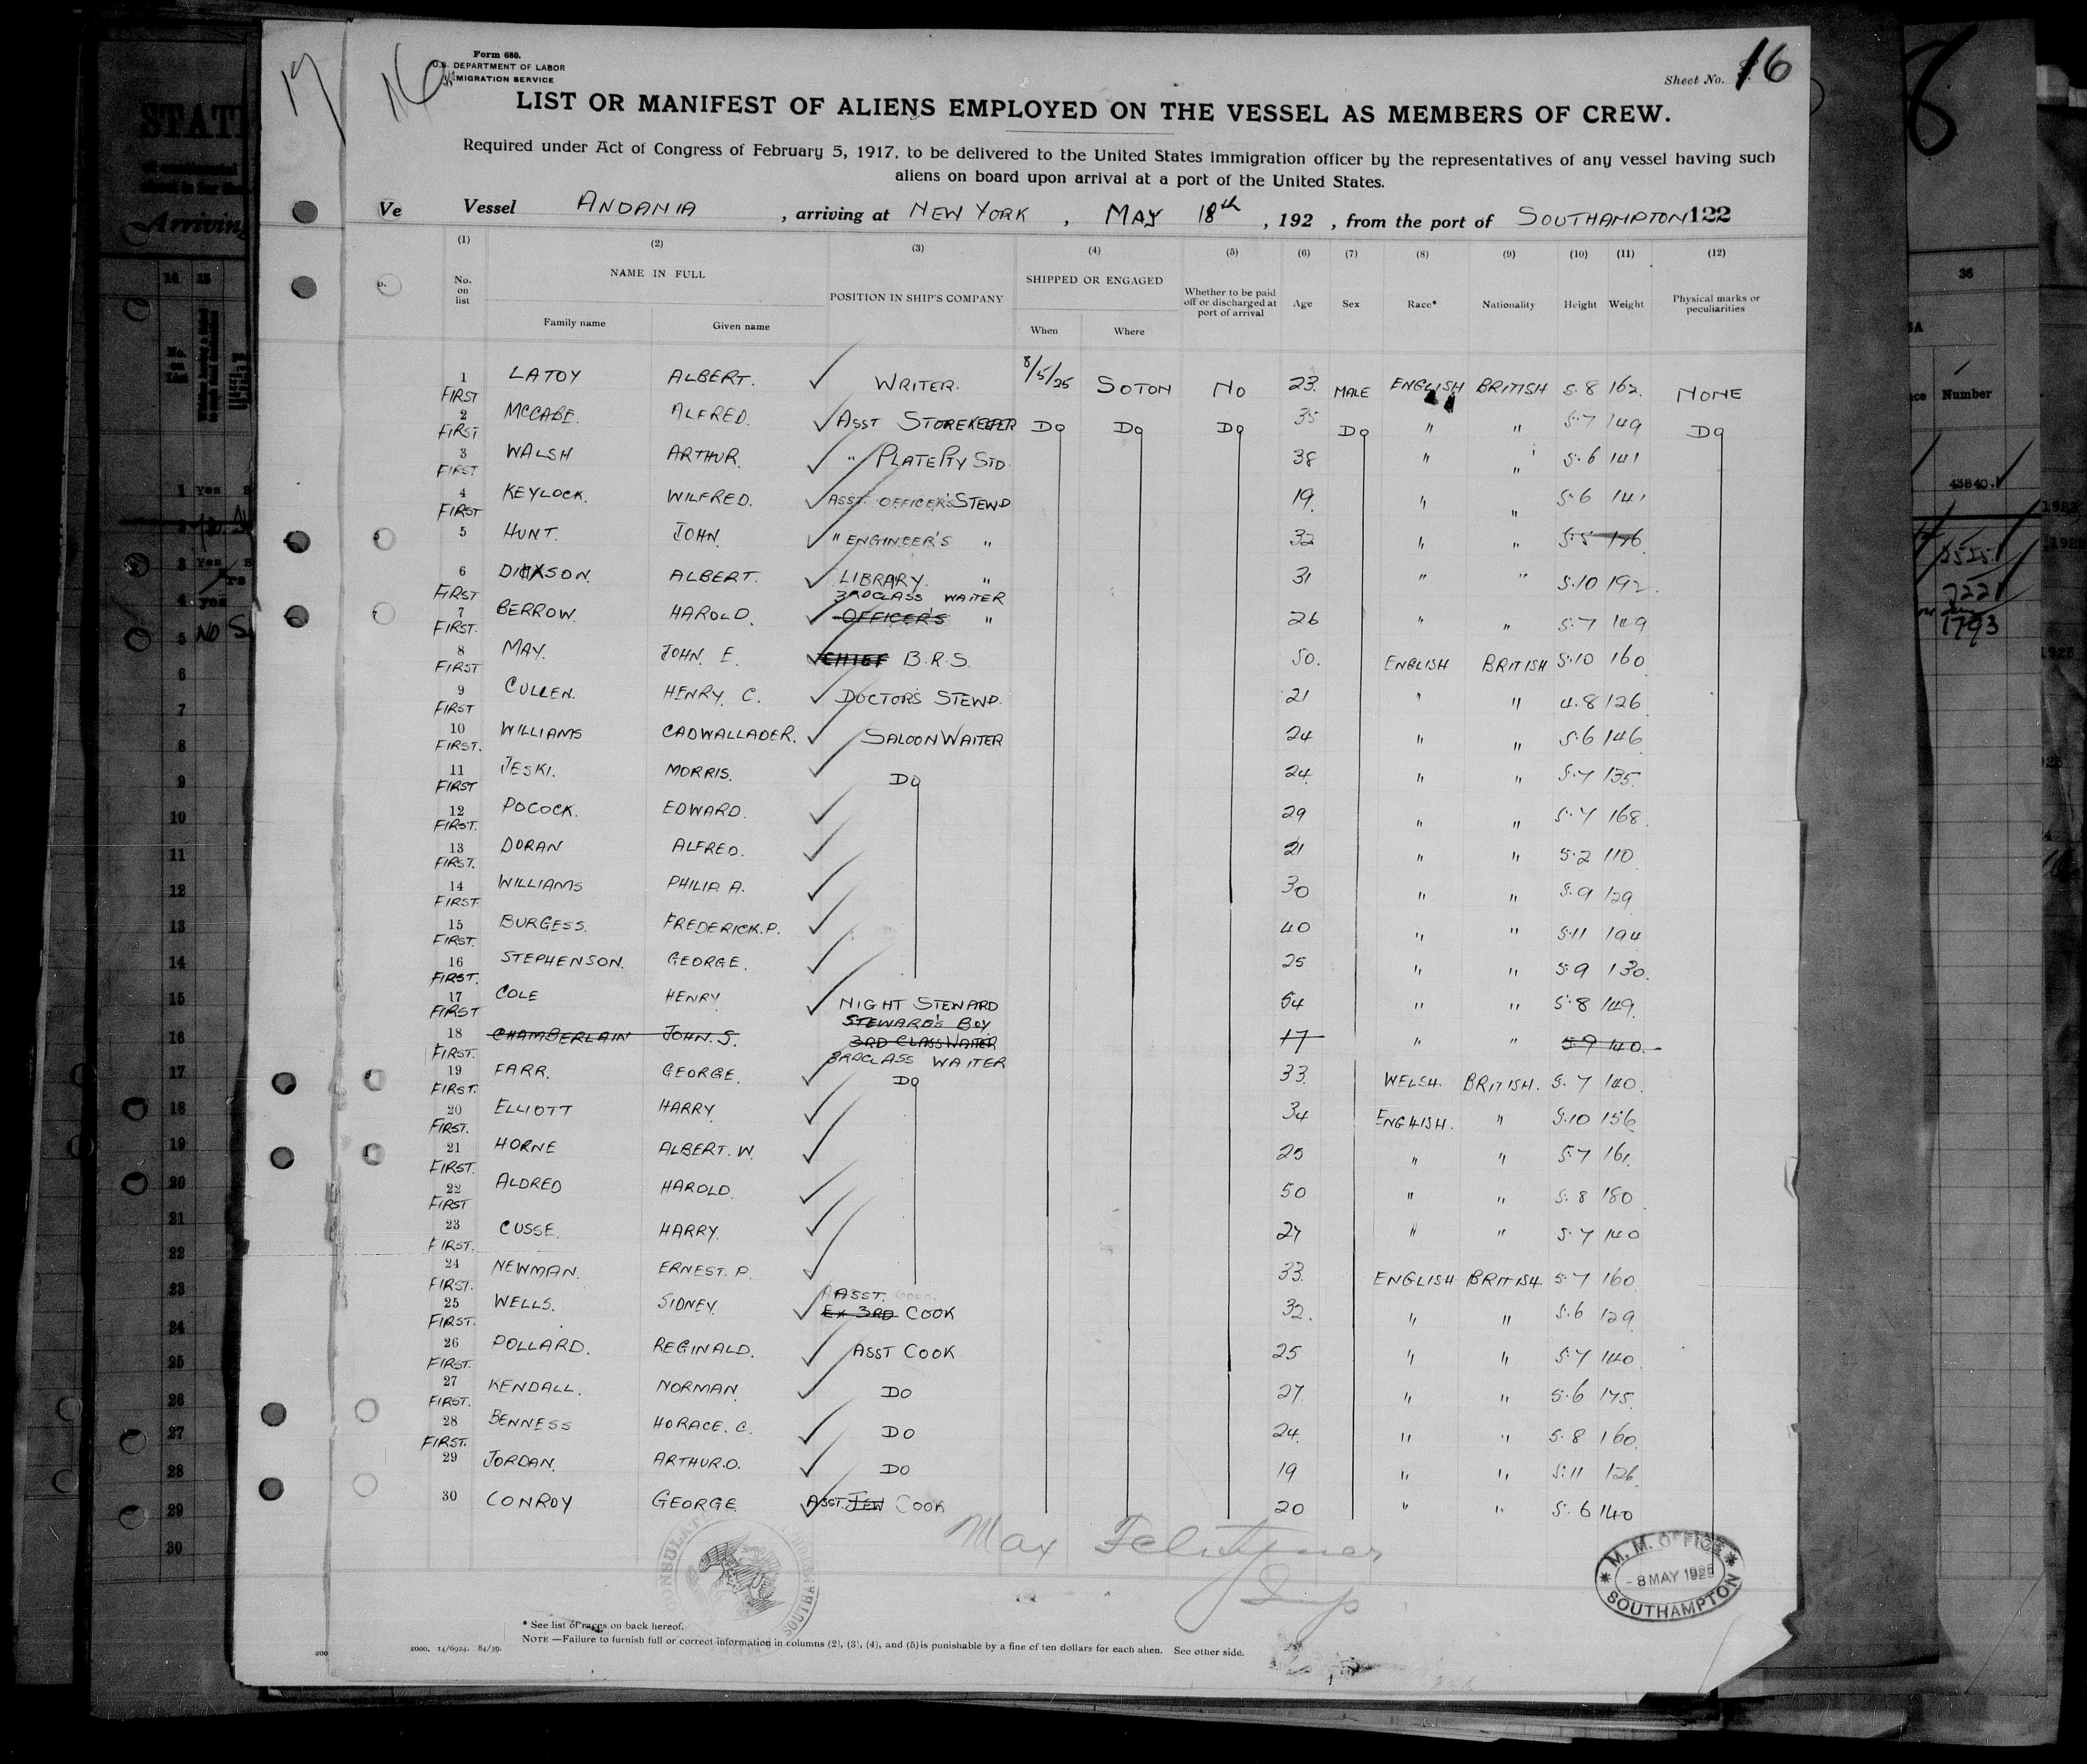 17
16
Form 680.
U.S. DEPARTMENT OF LABOR
IMMIGRATION SERVICE
Sheet No. 16
LIST OR MANIFEST OF ALIENS EMPLOYED ON THE VESSEL AS MEMBERS OF CREW.
Required under Act of Congress of February 5, 1917, to be delivered to the United States immigration officer by the representatives of any vessel having such
aliens on board upon arrival at a port of the United States.
Vessel ANDANIA, arriving at NEW YORK, MAY 18th, 192 , from the port of SOUTHAMPTON 122
(1) (2) (3) (4) (5) (6) (7) (8) (9) (10) (11) (12)
No. on list NAME IN FULL POSITION IN SHIP'S COMPANY SHIPPED OR ENGAGED Whether to be paid off or discharged at port of arrival Age Sex Race* Nationality Height Weight Physical marks or peculiarities
Family name Given name When Where
1 FIRST LATOY ALBERT. WRITER. 8/5/25 SOTON NO 23. MALE ENGLISH BRITISH 5.8 162. NONE
2 FIRST MCCABE. ALFRED. ASST STOREKEEPER DO DO DO 35 DO " " 5.7 149 DO
3 FIRST WALSH ARTHUR. " PLATE PTY STD. 38 " " 5.6 141
4 FIRST KEYLOCK. WILFRED. ASST. OFFICER'S STEWD 19. " " 5.6 141
5 HUNT. JOHN. " ENGINEER'S " 32 " " 5.5 176
6 FIRST DICKSON. ALBERT. LIBRARY. " 31 " " 5.10 192.
3RD CLASS WAITER
7 FIRST. BERROW. HAROLD. OFFICER'S " 26 " " 5.7 149
8 FIRST MAY. JOHN. E. CHIEF B.R.S. 50. ENGLISH BRITISH 5.10 160
9 FIRST CULLEN. HENRY. C. DOCTOR'S STEWD. 21 " " 4.8 126
10 FIRST. WILLIAMS CADWALLADER. SALOON WAITER 24 " " 5.6 146
11 FIRST JESKI. MORRIS. DO 24. " " 5.7 135.
12 FIRST. POCOCK. EDWARD. 29 " " 5.7 168.
13 FIRST. DORAN ALFRED. 21 " " 5.2 110
14 FIRST. WILLIAMS PHILIP. A. 30 " " 5.9 129
15 FIRST. BURGESS. FREDERICK. P. 40 " " 5.11 194
16 FIRST. STEPHENSON. GEORGE. 25 " " 5.9 130.
17 FIRST COLE HENRY NIGHT STEWARD 54 " " 5.8 149.
STEWARD'S BOY.
18 FIRST. CHAMBERLAIN JOHN. S. 3RD CLASS WAITER 17 " " 5.9 140.
3RD CLASS WAITER
19 FIRST. FARR. GEORGE. DO 33. WELSH. BRITISH. 5.7 140.
20 FIRST. ELLIOTT HARRY. 34 ENGLISH. " 5.10 156
21 FIRST. HORNE ALBERT. W. 25 " " 5.7 161.
22 FIRST ALDRED HAROLD. 50 " " 5.8 180
23 FIRST. CUSSE. HARRY. 27 " " 5.7 140
24 FIRST. NEWMAN. ERNEST. P. 33. ENGLISH BRITISH 5.7 160.
ASST. COOK.
25 FIRST. WELLS. SIDNEY EX 3RD COOK 32. " " 5.6 129
26 FIRST. POLLARD. REGINALD. ASST COOK 25 " " 5.7 140
27 FIRST. KENDALL. NORMAN. DO 27. " " 5.6 175.
28 FIRST. BENNESS HORACE. C. DO 24. " " 5.8 160.
29 JORDAN. ARTHUR. O. DO 19 " " 5.11 126
30 CONROY GEORGE. ASST. JEW COOK 20 " " 5.6 140
Max
M. M. OFFICE
- 8 MAY 1925
SOUTHAMPTON
* See list of races on back hereof.
NOTE —Failure to furnish full or correct information in columns (2), (3), (4), and (5) is punishable by a fine of ten dollars for each alien. See other side.
2000. 14/6924. 84/39.